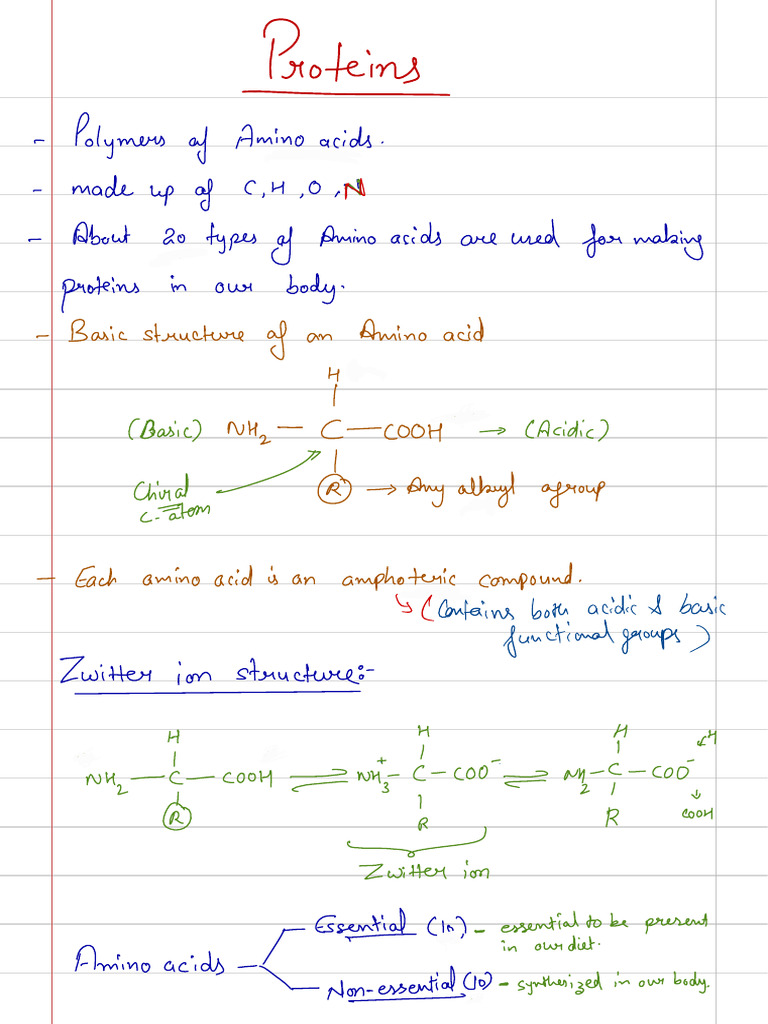 Proteins
- Polymers of Amino acids.
- made up of C, H, O, N
- About 20 types of Amino acids are used for making
proteins in our body.
- Basic structure of an Amino acid
H
(Basic) NH2 — C — COOH → (Acidic)
Chiral
C-atom
R → Any alkyl agroup
- Each amino acid is an amphoteric compound.
(Contains both acidic & basic
functional groups)
Zwitter ion structure:-
H H H H
NH2 — C — COOH ⇌ NH3+ — C — COO- ⇌ NH2 — C — COO-
R R R COOH
Zwitter ion
Essential (10) - essential to be present
in our diet.
Amino acids
Non-essential (10) - synthesized in our body.